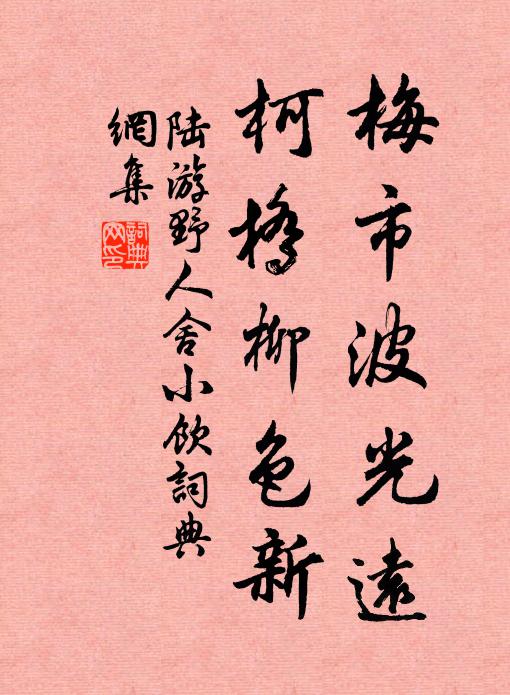 梅市波光遠
柯橋柳色新
陆游野人舍小飲詞典
網集
詞典
网印